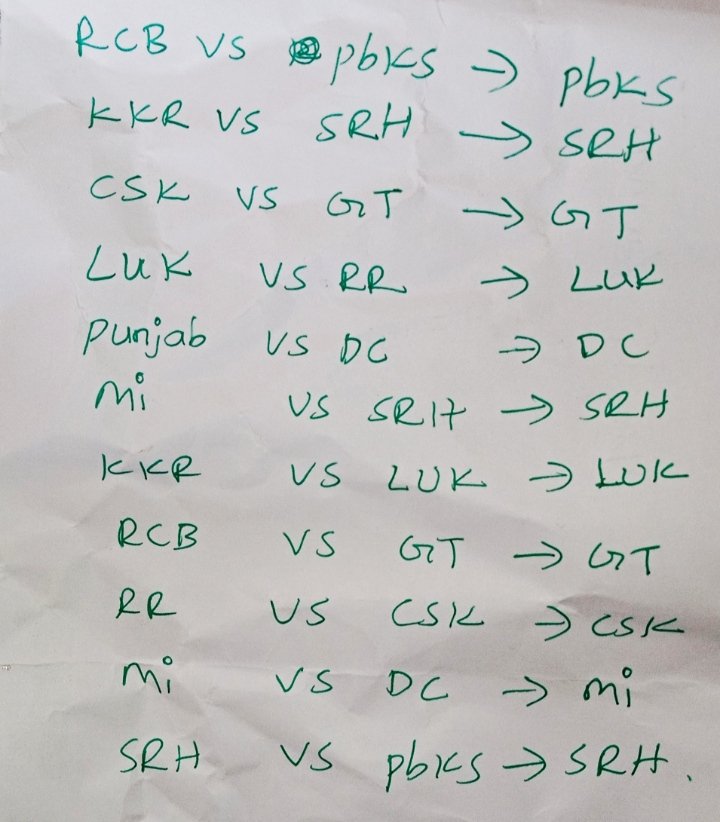 RCB vs pbks → pbks
KKR vs SRH → SRH
CSK vs GT → GT
LUK vs RR → LUK
punjab vs DC → DC
mi vs SRH → SRH
KKR vs LUK → LUK
RCB vs GT → GT
RR vs CSK → CSK
mi vs DC → mi
SRH vs pbks → SRH.